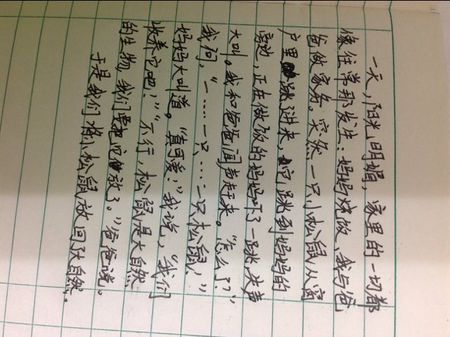 一天,阳光明媚,家里的一切都
像往常那发生:妈妈烧饭,我与爸
爸做家务。突然一只小松鼠从窗
户里跳进来,它跳到妈妈的
旁边,正在做饭的妈妈吓了一跳,失声
大叫。我和爸爸闻声赶来。“怎么了?”
我问。“一……一只……一只松鼠!”
妈妈大叫道。“真可爱!”我说,“我们
收养它吧?”“不行,松鼠是大自然
的生物,我们要把它放了。”爸爸说。
于是我们将小松鼠放回了大自然。